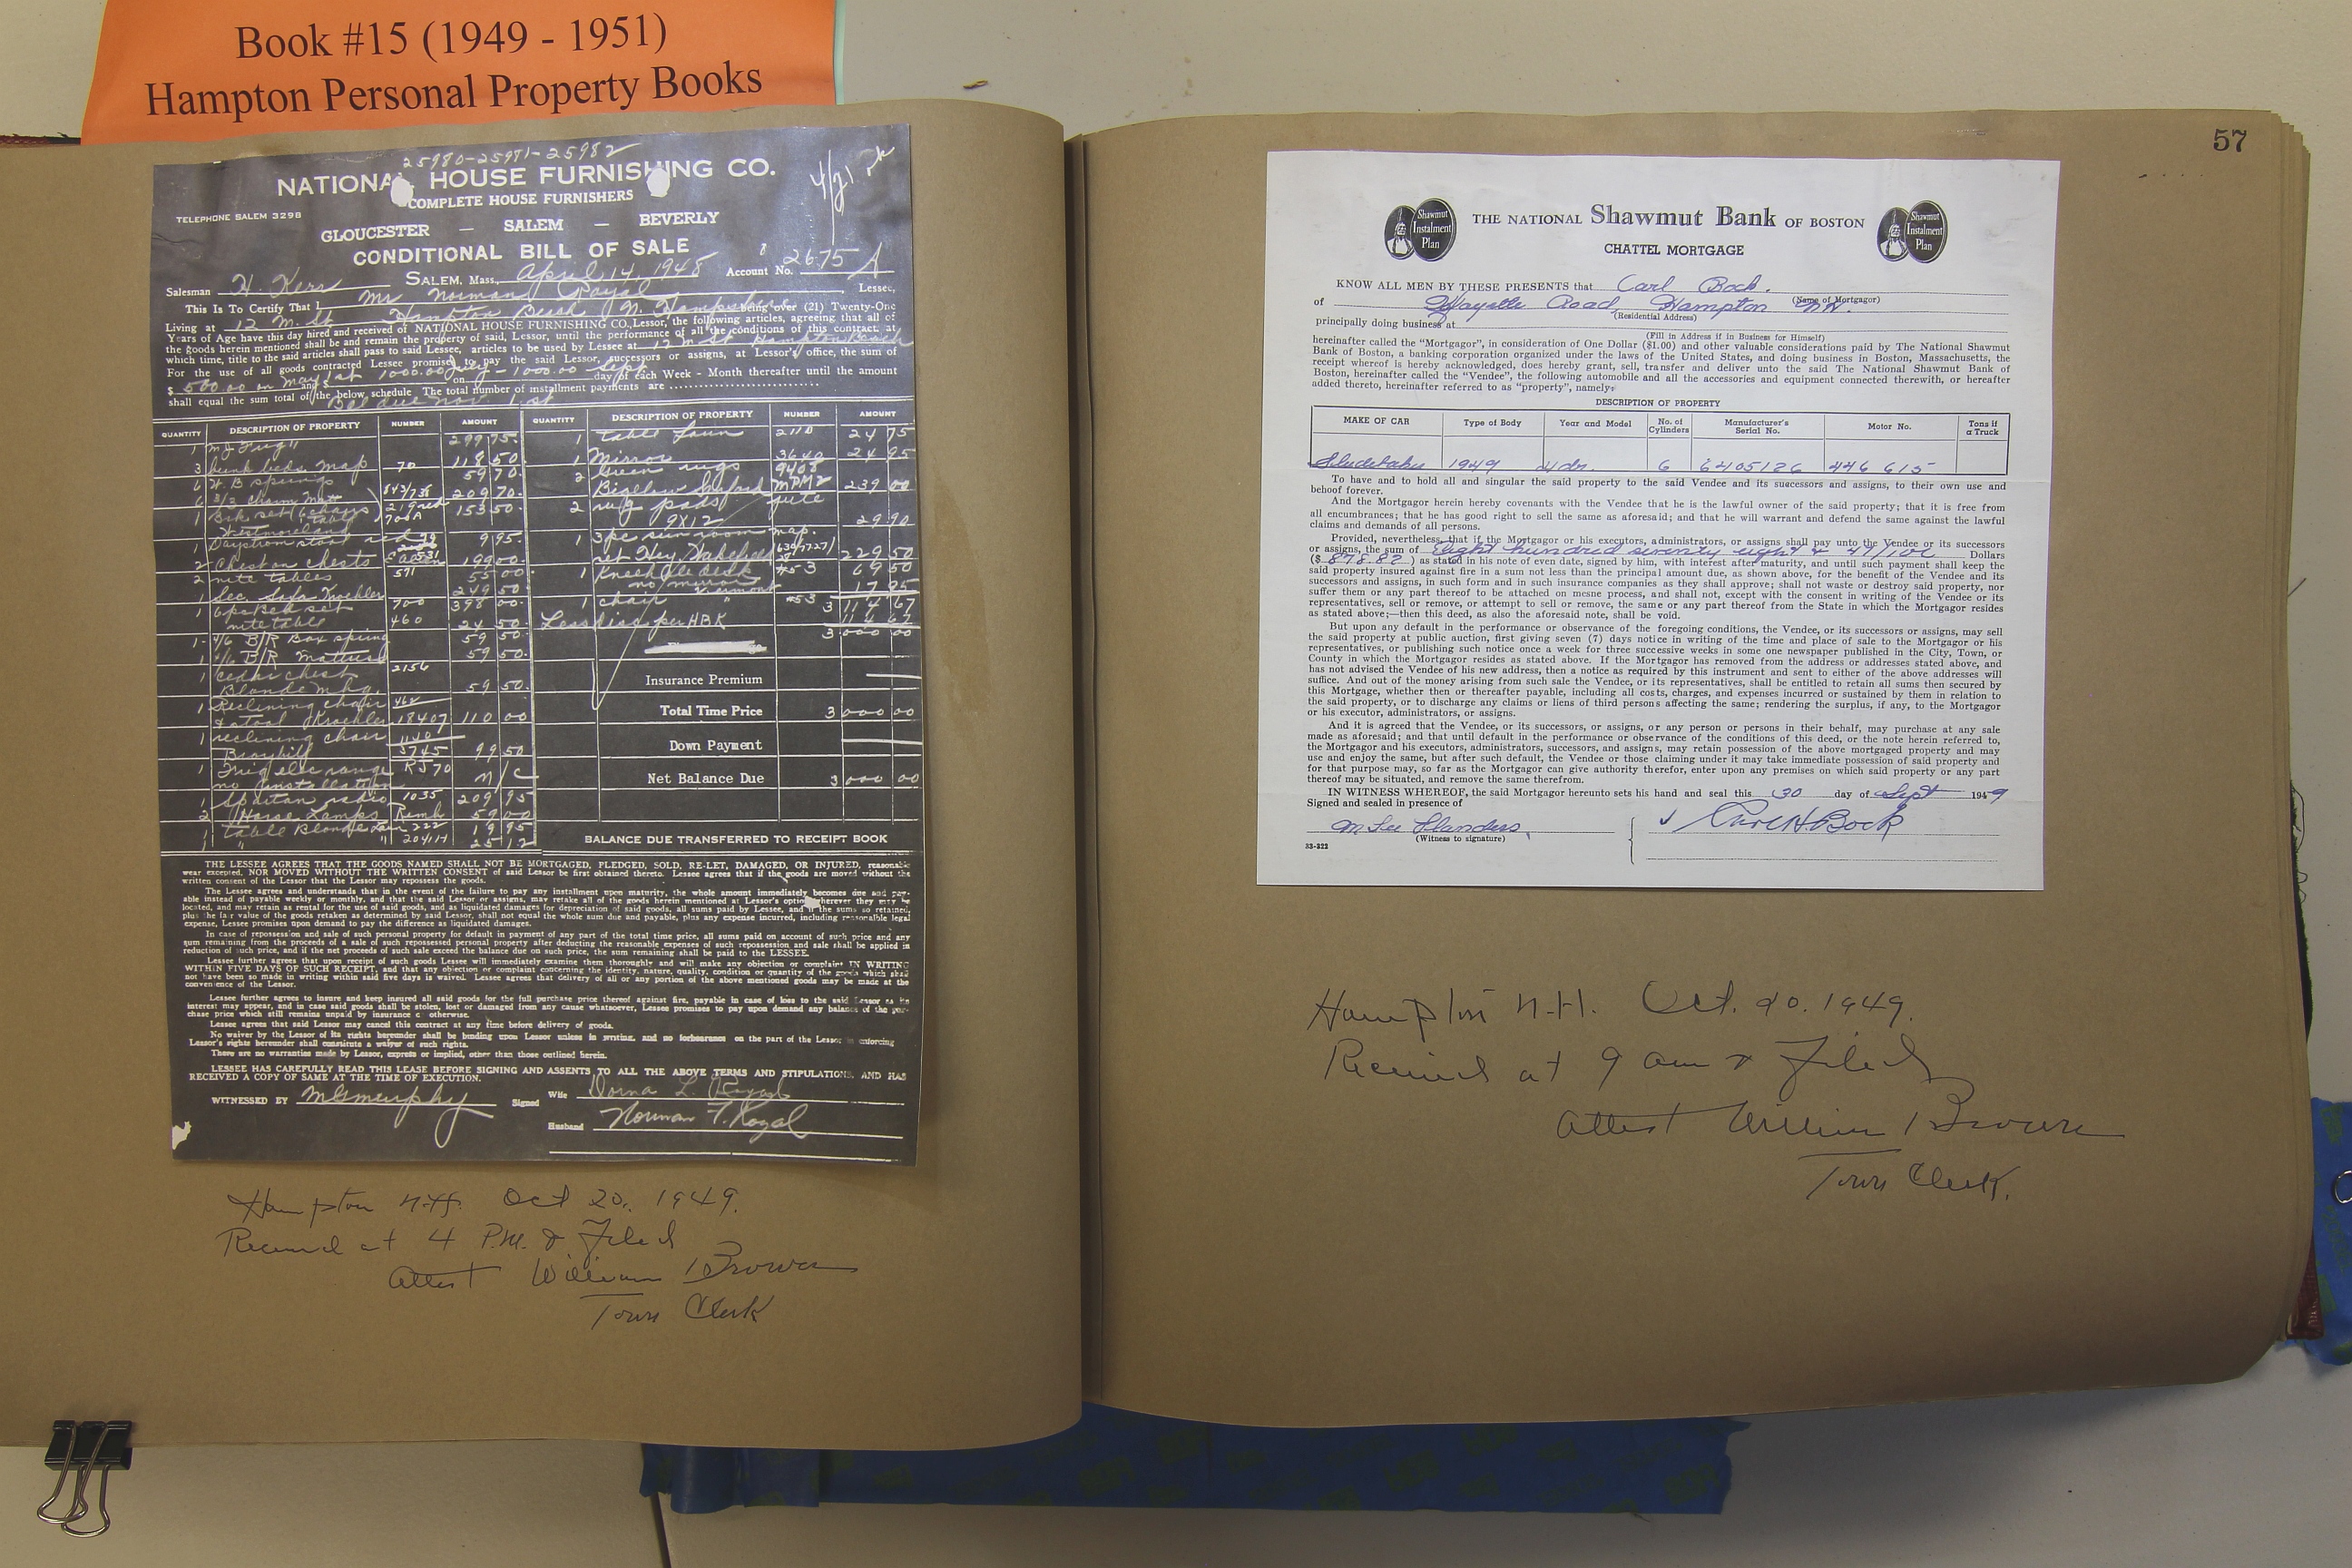 Book #15 (1949 - 1951)
Hampton Personal Property Books
25980-25981-25982
NATIONAL HOUSE FURNISHING CO.
COMPLETE HOUSE FURNISHERS
TELEPHONE SALEM 3298
GLOUCESTER — SALEM — BEVERLY
CONDITIONAL BILL OF SALE
4/21
Salesman H. Kerr SALEM, Mass., April 14, 1948 Account No. 2675 A
This Is To Certify That I Mr Norman Royal Lessee,
Living at 12 M. St Hampton Beach N. Hampshire being over (21) Twenty-One
Years of Age have this day hired and received of NATIONAL HOUSE FURNISHING CO., Lessor, the following articles, agreeing that all of
the goods herein mentioned shall be and remain the property of said, Lessor, until the performance of all the conditions of this contract, at
which time, title to the said articles shall pass to said Lessee, articles to be used by Lessee at 12 M St Hampton Beach
For the use of all goods contracted Lessee promises to pay the said Lessor, successors or assigns, at Lessor's office, the sum of
$ 500.00 on May 1st and $ 1000.00 July - 1000.00 Sept on day of each Week - Month thereafter until the amount
shall equal the sum total of the below schedule The total number of installment payments are
Bal due Nov. 1st
QUANTITY DESCRIPTION OF PROPERTY NUMBER AMOUNT QUANTITY DESCRIPTION OF PROPERTY NUMBER AMOUNT
1 299 75 1 table 2110 24 75
3 bunk beds map 70 118 50 1 Mirror 3640 24 95
6 H B springs 59 70 2 Green rugs 9408
6 3/3 209 70 Bigelow 239 00
1 Bk set 6 chairs 153 50 2 rug pads jute
9X12 29 90
1 Daystrom stool red 9 95 1 3pc sun room map.
2 Chest on chests 199 00 set Hey Wakefield 229 50
2 nite tables 571 55 00 1 Kneehole desk #53 69 50
1 Sec Sofa Kroehler 249 50 no mirror Vermont 17 95
1 6pc Bk set 700 398 00 1 chair " #53 3 114 67
nite table 460 24 50 Less disc per HBK 114 67
1 4/6 B/R Box spring 59 50 3000 00
1 4/6 B/R Mattress 59 50
1 cedar chest 2156 Insurance Premium
Blonde mhg. 59 50
1 Reclining chair 462 Total Time Price 3000 00
& stool Kroehler 18407 110 00
1 reclining chair Down Payment
Broyhill 5745 99 50
1 Frig elec range RJ70 n/c Net Balance Due 3000 00
no installation
1 Spartan radio 1035 209 95
2 Horse Lamps Remb 59 00
1 table Blonde 222 19 95
1 " " 204H 25 12
BALANCE DUE TRANSFERRED TO RECEIPT BOOK
THE LESSEE AGREES THAT THE GOODS NAMED SHALL NOT BE MORTGAGED, PLEDGED, SOLD, RE-LET, DAMAGED, OR INJURED, reasonable
wear excepted, NOR MOVED WITHOUT THE WRITTEN CONSENT of said Lessor be first obtained thereto. Lessee agrees that if the goods are moved without the
written consent of the Lessor that the Lessor may repossess the goods.
The Lessee agrees and understands that in the event of the failure to pay any installment upon maturity, the whole amount immediately becomes due and pay-
able instead of payable weekly or monthly, and that the said Lessor or assigns, may retake all of the goods herein mentioned at Lessor's option wherever they may be
located, and may retain as rental for the use of said goods, and as liquidated damages for depreciation of said goods, all sums paid by Lessee, and if the sums so retained,
plus the fair value of the goods retaken as determined by said Lessor, shall not equal the whole sum due and payable, plus any expense incurred, including reasonable legal
expense, Lessee promises upon demand to pay the difference as liquidated damages.
In case of repossession and sale of such personal property for default in payment of any part of the total time price, all sums paid on account of such price and any
sum remaining from the proceeds of a sale of such repossessed personal property after deducting the reasonable expenses of such repossession and sale shall be applied in
reduction of such price, and if the net proceeds of such sale exceed the balance due on such price, the sum remaining shall be paid to the LESSEE.
Lessee further agrees that upon receipt of such goods Lessee will immediately examine them thoroughly and will make any objection or complaint IN WRITING
WITHIN FIVE DAYS OF SUCH RECEIPT, and that any objection or complaint concerning the identity, nature, quality, condition or quantity of the goods which shall
not have been so made in writing within said five days is waived. Lessee agrees that delivery of all or any portion of the above mentioned goods may be made at the
convenience of the Lessor.
Lessee further agrees to insure and keep insured all said goods for the full purchase price thereof against fire, payable in case of loss to the said Lessor as its
interest may appear, and in case said goods shall be stolen, lost or damaged from any cause whatsoever, Lessee promises to pay upon demand any balance of the pur-
chase price which still remains unpaid by insurance or otherwise.
Lessee agrees that said Lessor may cancel this contract at any time before delivery of goods.
No waiver by the Lessor of its rights hereunder shall be binding upon Lessor unless in writing, and no forbearance on the part of the Lessor in enforcing
Lessor's rights hereunder shall constitute a waiver of such rights.
There are no warranties made by Lessor, express or implied, other than those outlined herein.
LESSEE HAS CAREFULLY READ THIS LEASE BEFORE SIGNING AND ASSENTS TO ALL THE ABOVE TERMS AND STIPULATIONS, AND HAS
RECEIVED A COPY OF SAME AT THE TIME OF EXECUTION.
WITNESSED BY MGMurphy Signed Wife Dorna L. Royal
Husband Norman F. Royal
Hampton N.H. Oct 20, 1949.
Received at 4 P.M. & Filed
Attest William Brown
Town Clerk
57
Shawmut Instalment Plan
THE NATIONAL Shawmut Bank OF BOSTON
Shawmut Instalment Plan
CHATTEL MORTGAGE
KNOW ALL MEN BY THESE PRESENTS that Carl Bock.
(Name of Mortgagor)
of Road Hampton NH.
(Residential Address)
principally doing business at
(Fill in Address if in Business for Himself)
hereinafter called the "Mortgagor", in consideration of One Dollar ($1.00) and other valuable considerations paid by The National Shawmut
Bank of Boston, a banking corporation organized under the laws of the United States, and doing business in Boston, Massachusetts, the
receipt whereof is hereby acknowledged, does hereby grant, sell, transfer and deliver unto the said The National Shawmut Bank of
Boston, hereinafter called the "Vendee", the following automobile and all the accessories and equipment connected therewith, or hereafter
added thereto, hereinafter referred to as "property", namely:
DESCRIPTION OF PROPERTY
MAKE OF CAR Type of Body Year and Model No. of Cylinders Manufacturer's Serial No. Motor No. Tons if a Truck
Studebaker 1949 4 dr. 6 G405126 446 615
To have and to hold all and singular the said property to the said Vendee and its successors and assigns, to their own use and
behoof forever.
And the Mortgagor herein hereby covenants with the Vendee that he is the lawful owner of the said property; that it is free from
all encumbrances; that he has good right to sell the same as aforesaid; and that he will warrant and defend the same against the lawful
claims and demands of all persons.
Provided, nevertheless, that if the Mortgagor or his executors, administrators, or assigns shall pay unto the Vendee or its successors
or assigns, the sum of Eight hundred seventy eight & /100 Dollars
($ 878.82) as stated in his note of even date, signed by him, with interest after maturity, and until such payment shall keep the
said property insured against fire in a sum not less than the principal amount due, as shown above, for the benefit of the Vendee and its
successors and assigns, in such form and in such insurance companies as they shall approve; shall not waste or destroy said property, nor
suffer them or any part thereof to be attached on mesne process, and shall not, except with the consent in writing of the Vendee or its
representatives, sell or remove, or attempt to sell or remove, the same or any part thereof from the State in which the Mortgagor resides
as stated above;—then this deed, as also the aforesaid note, shall be void.
But upon any default in the performance or observance of the foregoing conditions, the Vendee, or its successors or assigns, may sell
the said property at public auction, first giving seven (7) days notice in writing of the time and place of sale to the Mortgagor or his
representatives, or publishing such notice once a week for three successive weeks in some one newspaper published in the City, Town, or
County in which the Mortgagor resides as stated above. If the Mortgagor has removed from the address or addresses stated above, and
has not advised the Vendee of his new address, then a notice as required by this instrument and sent to either of the above addresses will
suffice. And out of the money arising from such sale the Vendee, or its representatives, shall be entitled to retain all sums then secured by
this Mortgage, whether then or thereafter payable, including all costs, charges, and expenses incurred or sustained by them in relation to
the said property, or to discharge any claims or liens of third persons affecting the same; rendering the surplus, if any, to the Mortgagor
or his executor, administrators, or assigns.
And it is agreed that the Vendee, or its successors, or assigns, or any person or persons in their behalf, may purchase at any sale
made as aforesaid; and that until default in the performance or observance of the conditions of this deed, or the note herein referred to,
the Mortgagor and his executors, administrators, successors, and assigns, may retain possession of the above mortgaged property and may
use and enjoy the same, but after such default, the Vendee or those claiming under it may take immediate possession of said property and
for that purpose may, so far as the Mortgagor can give authority therefor, enter upon any premises on which said property or any part
thereof may be situated, and remove the same therefrom.
IN WITNESS WHEREOF, the said Mortgagor hereunto sets his hand and seal this 30 day of Sept 1949
Signed and sealed in presence of
M Lee Flanders Carl H. Bock
(Witness to signature)
33-322
Hampton N.H. Oct. 20. 1949.
Received at 9 am & Filed
Attest William Brown
Town Clerk.